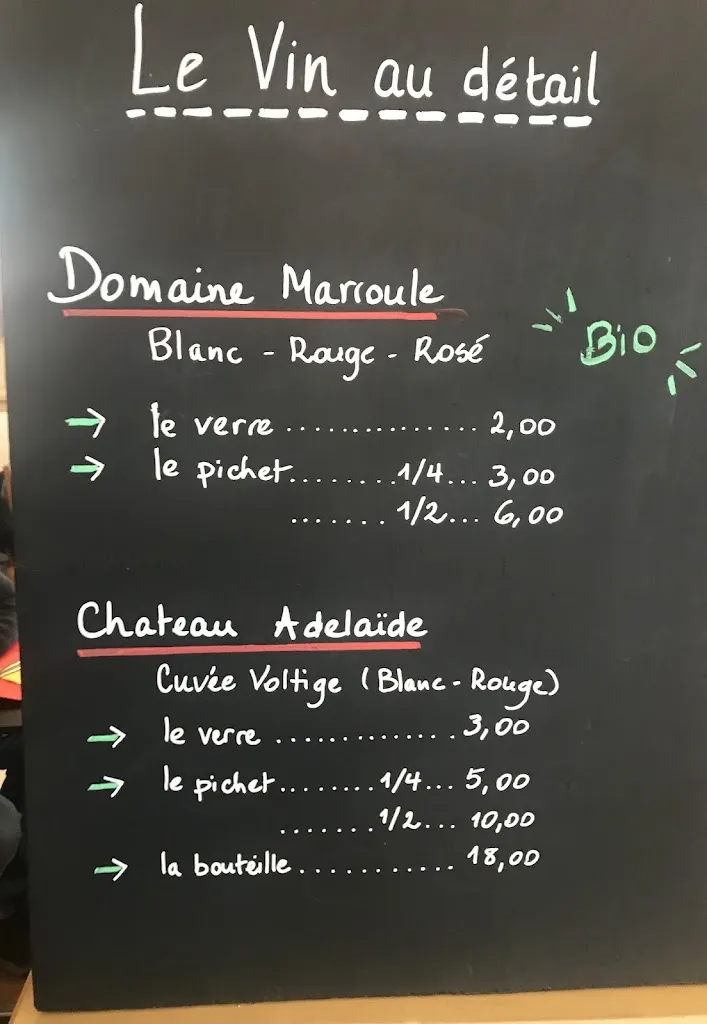 Le Vin au détail
Domaine Marroule
Bio
Blanc - Rouge - Rosé
→ le verre ............... 2,00
→ le pichet........1/4... 3,00
.......1/2... 6,00
Chateau Adelaïde
Cuvée Voltige (Blanc-Rouge)
→ le verre ..............3,00
→ le pichet........1/4... 5,00
.......1/2... 10,00
→ la bouteille............ 18,00